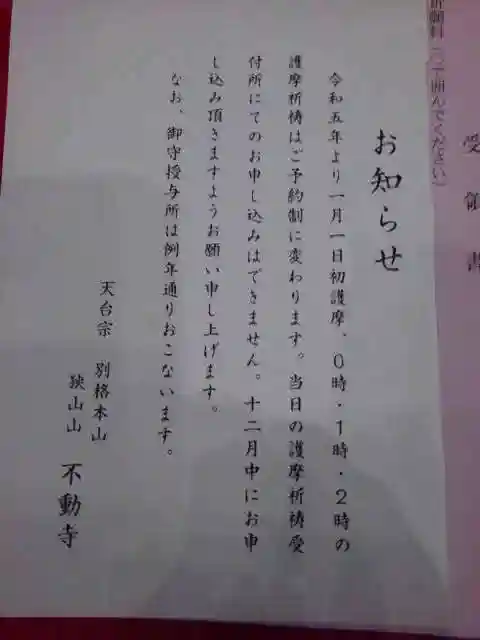 祈祷料（○で囲んでください）
受領書
お知らせ
令和五年より一月一日初護摩、０時・１時・２時の
護摩祈祷はご予約制に変わります。当日の護摩祈祷受
付所にてのお申し込みはできません。十二月中にお申
し込み頂きますようお願い申し上げます。
なお、御守授与所は例年通りおこないます。
天台宗 別格本山
狭山山 不動寺